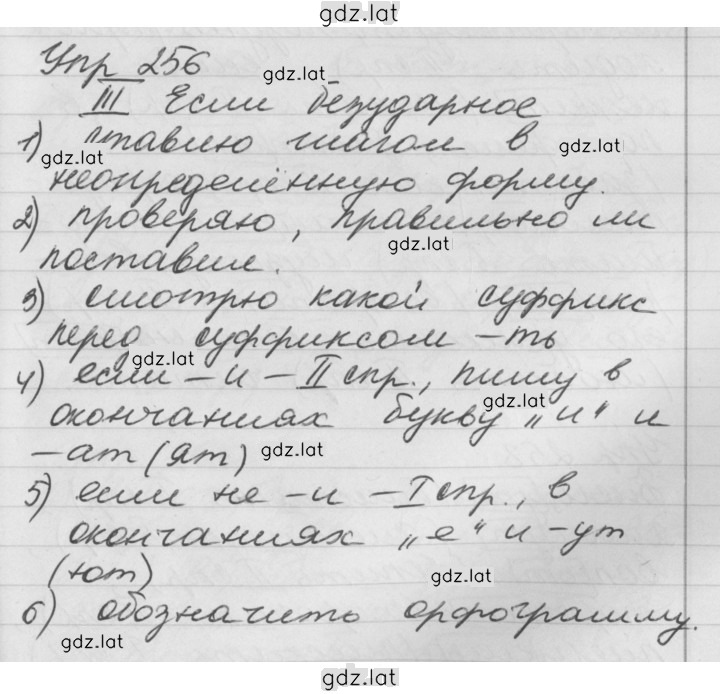 gdz.lat
Упр 256
gdz.lat
III Если безударное
1) ставлю глагол в
gdz.lat
gdz.lat
неопределённую форму.
2) проверяю, правильно ли
gdz.lat
поставил.
3) смотрю какой суффикс
перед суффиксом -ть
gdz.lat
4) если - и - II спр., пишу в
gdz.lat
окончаниях букву „и“ и
-ат (ят)
gdz.lat
5) если не -и - I спр., в
окончаниях „е“ и -ут
(ют)
gdz.lat
6) обозначить орфограмму.
gdz.lat
gdz.lat